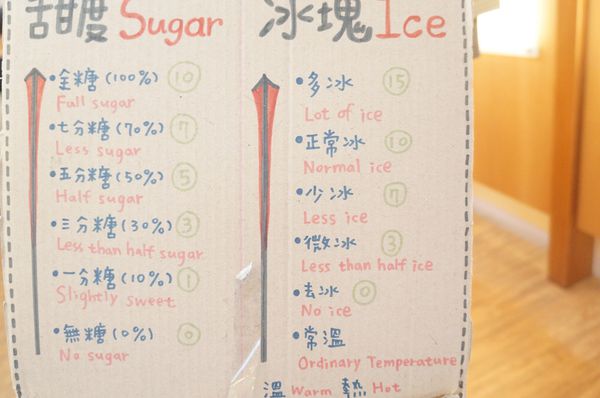 甜度 Sugar
•全糖(100%) 10
Full sugar
•七分糖(70%) 7
Less sugar
•五分糖(50%) 5
Half sugar
•三分糖(30%) 3
Less than half sugar
•一分糖(10%) 1
Slightly sweet
•無糖(0%) 0
No sugar
冰塊 Ice
•多冰 15
Lot of ice
•正常冰 10
Normal ice
•少冰 7
Less ice
•微冰 3
Less than half ice
•去冰 0
No ice
•常溫
Ordinary Temperature
溫 Warm 熱 Hot